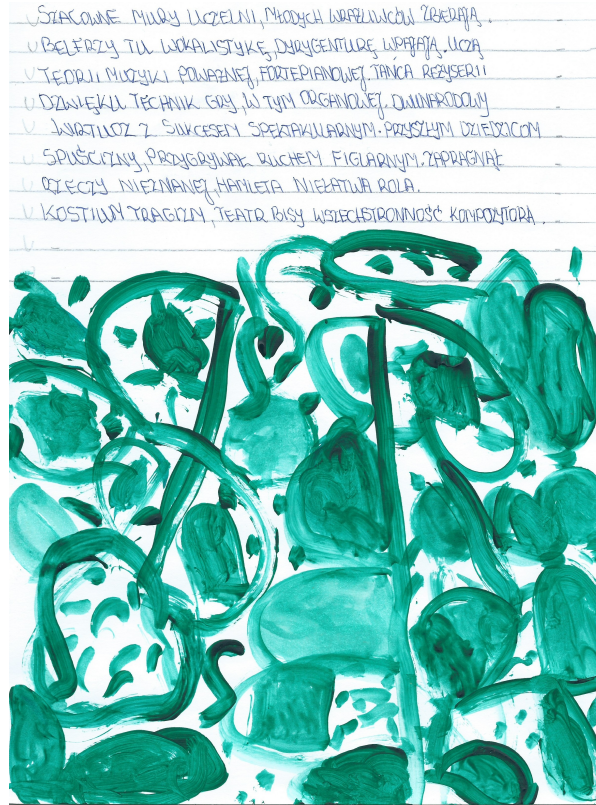 SZACOWNE MURY UCZELNI, MŁODYCH WRAŻLIWCÓW ZBIERAJĄ.
BELFRZY TU WOKALISTYKĘ, DYRYGENTURĘ WPAJAJĄ. UCZĄ
TEORII MUZYKI POWAŻNEJ, FORTEPIANOWEJ. TAŃCA REŻYSERII
DŹWIĘKU TECHNIK GRY, W TYM ORGANOWEJ. DWUNARODOWY
WIRTUOZ Z SUKCESEM SPEKTAKULARNYM. PRZYSZŁYM DZIEDZICOM
SPUŚCIZNY, PRZYGRYWAŁ RUCHEM FIGLARNYM. ZAPRAGNĄŁ
RZECZY NIEZNANEJ, HAMLETA NIEŁATWA ROLA.
KOSTIUM TRAGIZM, TEATR BISY WSZECHSTRONNOŚĆ KOMPOZYTORA.